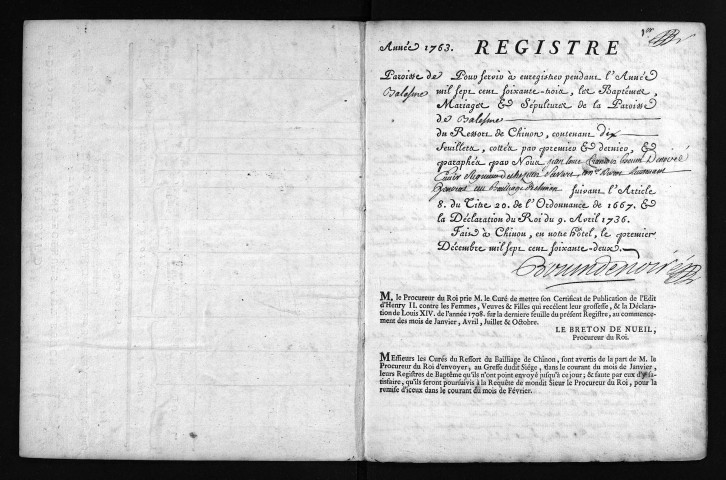 1er
Année 1763. REGISTRE
Paroisse de
Balesme
Pour servir à enregistrer pendant l'Année
mil sept cent soixante-trois, les Baptêmes,
Mariages & Sépultures de la Paroisse
de Balesme
du Ressort de Chinon, contenant dix
feuillets, cottés par premier & dernier, &
paraphés par Nous
suivant l'Article
8. du Titre 20. de l'Ordonnance de 1667. &
la Déclaration du Roi du 9. Avril 1736.
Fait à Chinon, en notre hôtel, le premier
Décembre mil sept cent soixante-deux.
M. le Procureur du Roi prie M. le Curé de mettre son Certificat de Publication de l'Edit
d'Henry II. contre les Femmes, Veuves & Filles qui recélent leur grossesse, & la Déclara-
tion de Louis XIV. de l'année 1708. sur la derniere feuille du présent Registre, au commence-
ment des mois de Janvier, Avril, Juillet & Octobre.
LE BRETON DE NUEIL,
Procureur du Roi.
Messieurs les Curés du Ressort du Bailliage de Chinon, sont avertis de la part de M. le
Procureur du Roi d'envoyer, au Greffe dudit Siége, dans le courant du mois de Janvier,
leurs Registres de Baptême qu'ils n'ont point envoyé jusqu'à ce jour; & faute par eux d'y sa-
tisfaire, qu'ils seront poursuivis à la Requête de mondit Sieur le Procureur du Roi, pour la
remise d'iceux dans le courant du mois de Février.